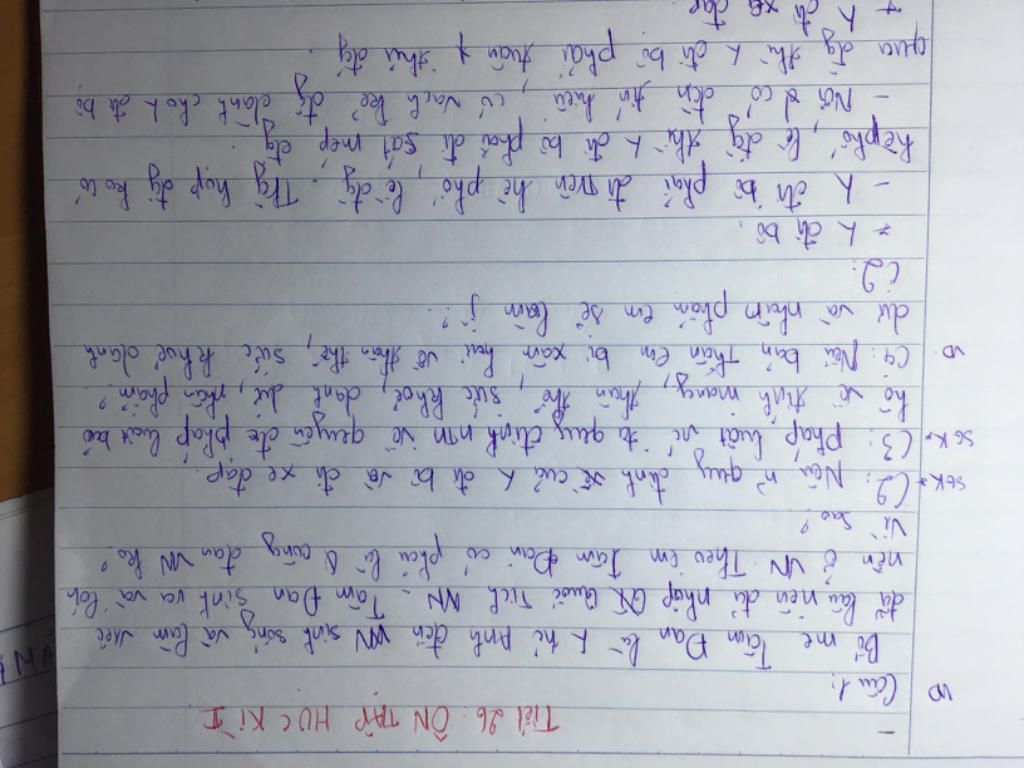 Tiết 26: ÔN TẬP HỌC KÌ II
VD Câu 1:
Bố mẹ Tâm Đan là sinh đến VN sinh sống và làm việc
đã lâu nên đã nhập quốc tịch VN. Tâm Đan sinh ra và lớn
nên ở VN. Theo em Tâm Đan có phải là công dân VN ko?
Vì sao?
SGK* C2: Nêu n² quy định về của đi bộ và đi xe đạp.
SGK* C3: Pháp luật quy định ntn về quyền đc pháp luật bảo
hộ về tính mạng, thân thể, sức khoẻ, danh dự, nhân phẩm?
VD C4: Nếu bản thân em bị xâm hại về thân thể, sức khoẻ danh
dự và nhân phẩm em sẽ làm j?
C2:
* đi bộ.
- đi bộ phải đi trên hè phố, lề đg. Trg hợp đg ko có
hè phố, lề đg thì đi bộ phải đi sát mép đg.
- Nơi có đèn tín hiệu, có vạch kẻ đg dành cho đi bộ
qua đg thì đi bộ phải tuân thủ đg.
+ đi xe đạp